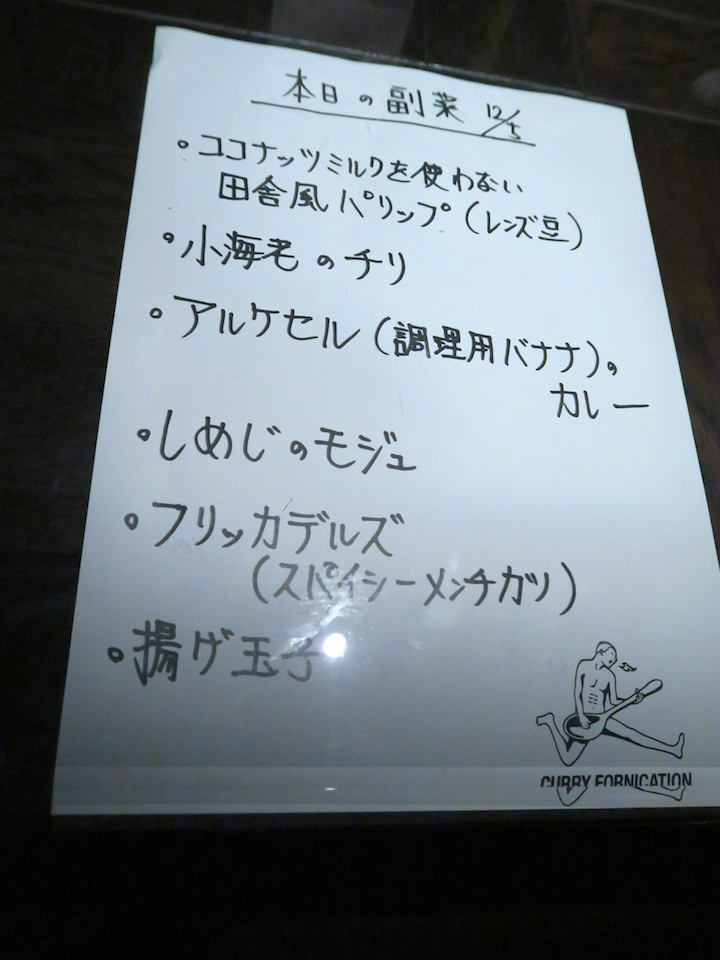 本日の副菜 12/5
・ココナッツミルクを使わない
田舎風パリップ(レンズ豆)
・小海老のチリ
・アルケセル(調理用バナナ)の
カレー
・しめじのモジュ
・フリッカデルズ
(スパイシーメンチカツ)
・揚げ玉子
CURRY FORNICATION